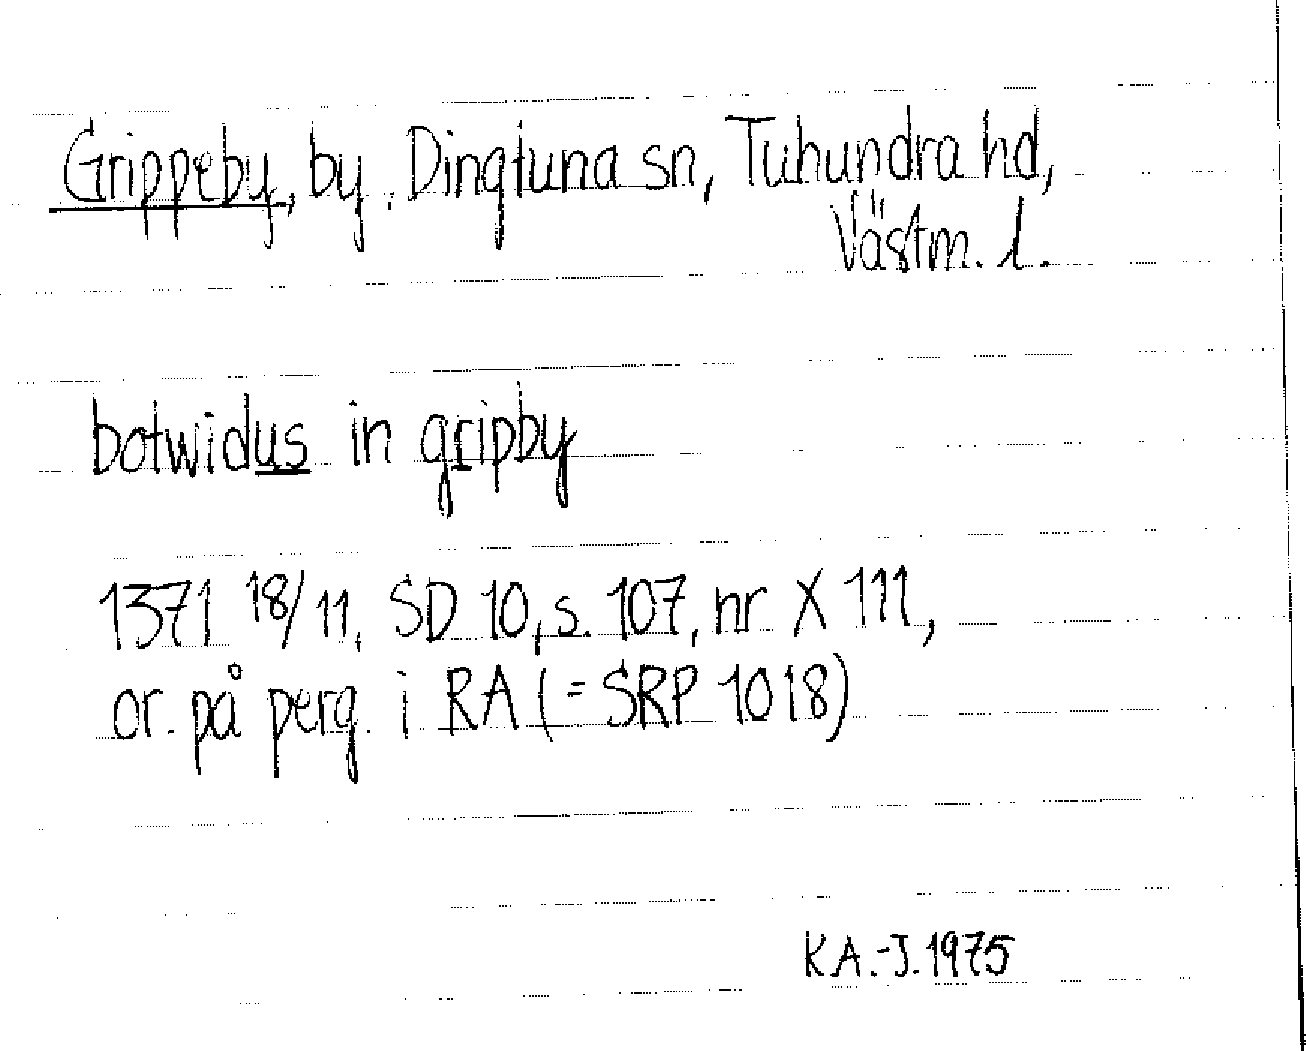 Grippeby, by, Dingtuna sn, Tuhundra hd,
Västm. l.
botwidus in gripby
1371 18/11, SD 10, s. 107, nr X 111,
or. på perg. i RA (= SRP 1018)
K A.-J. 1975